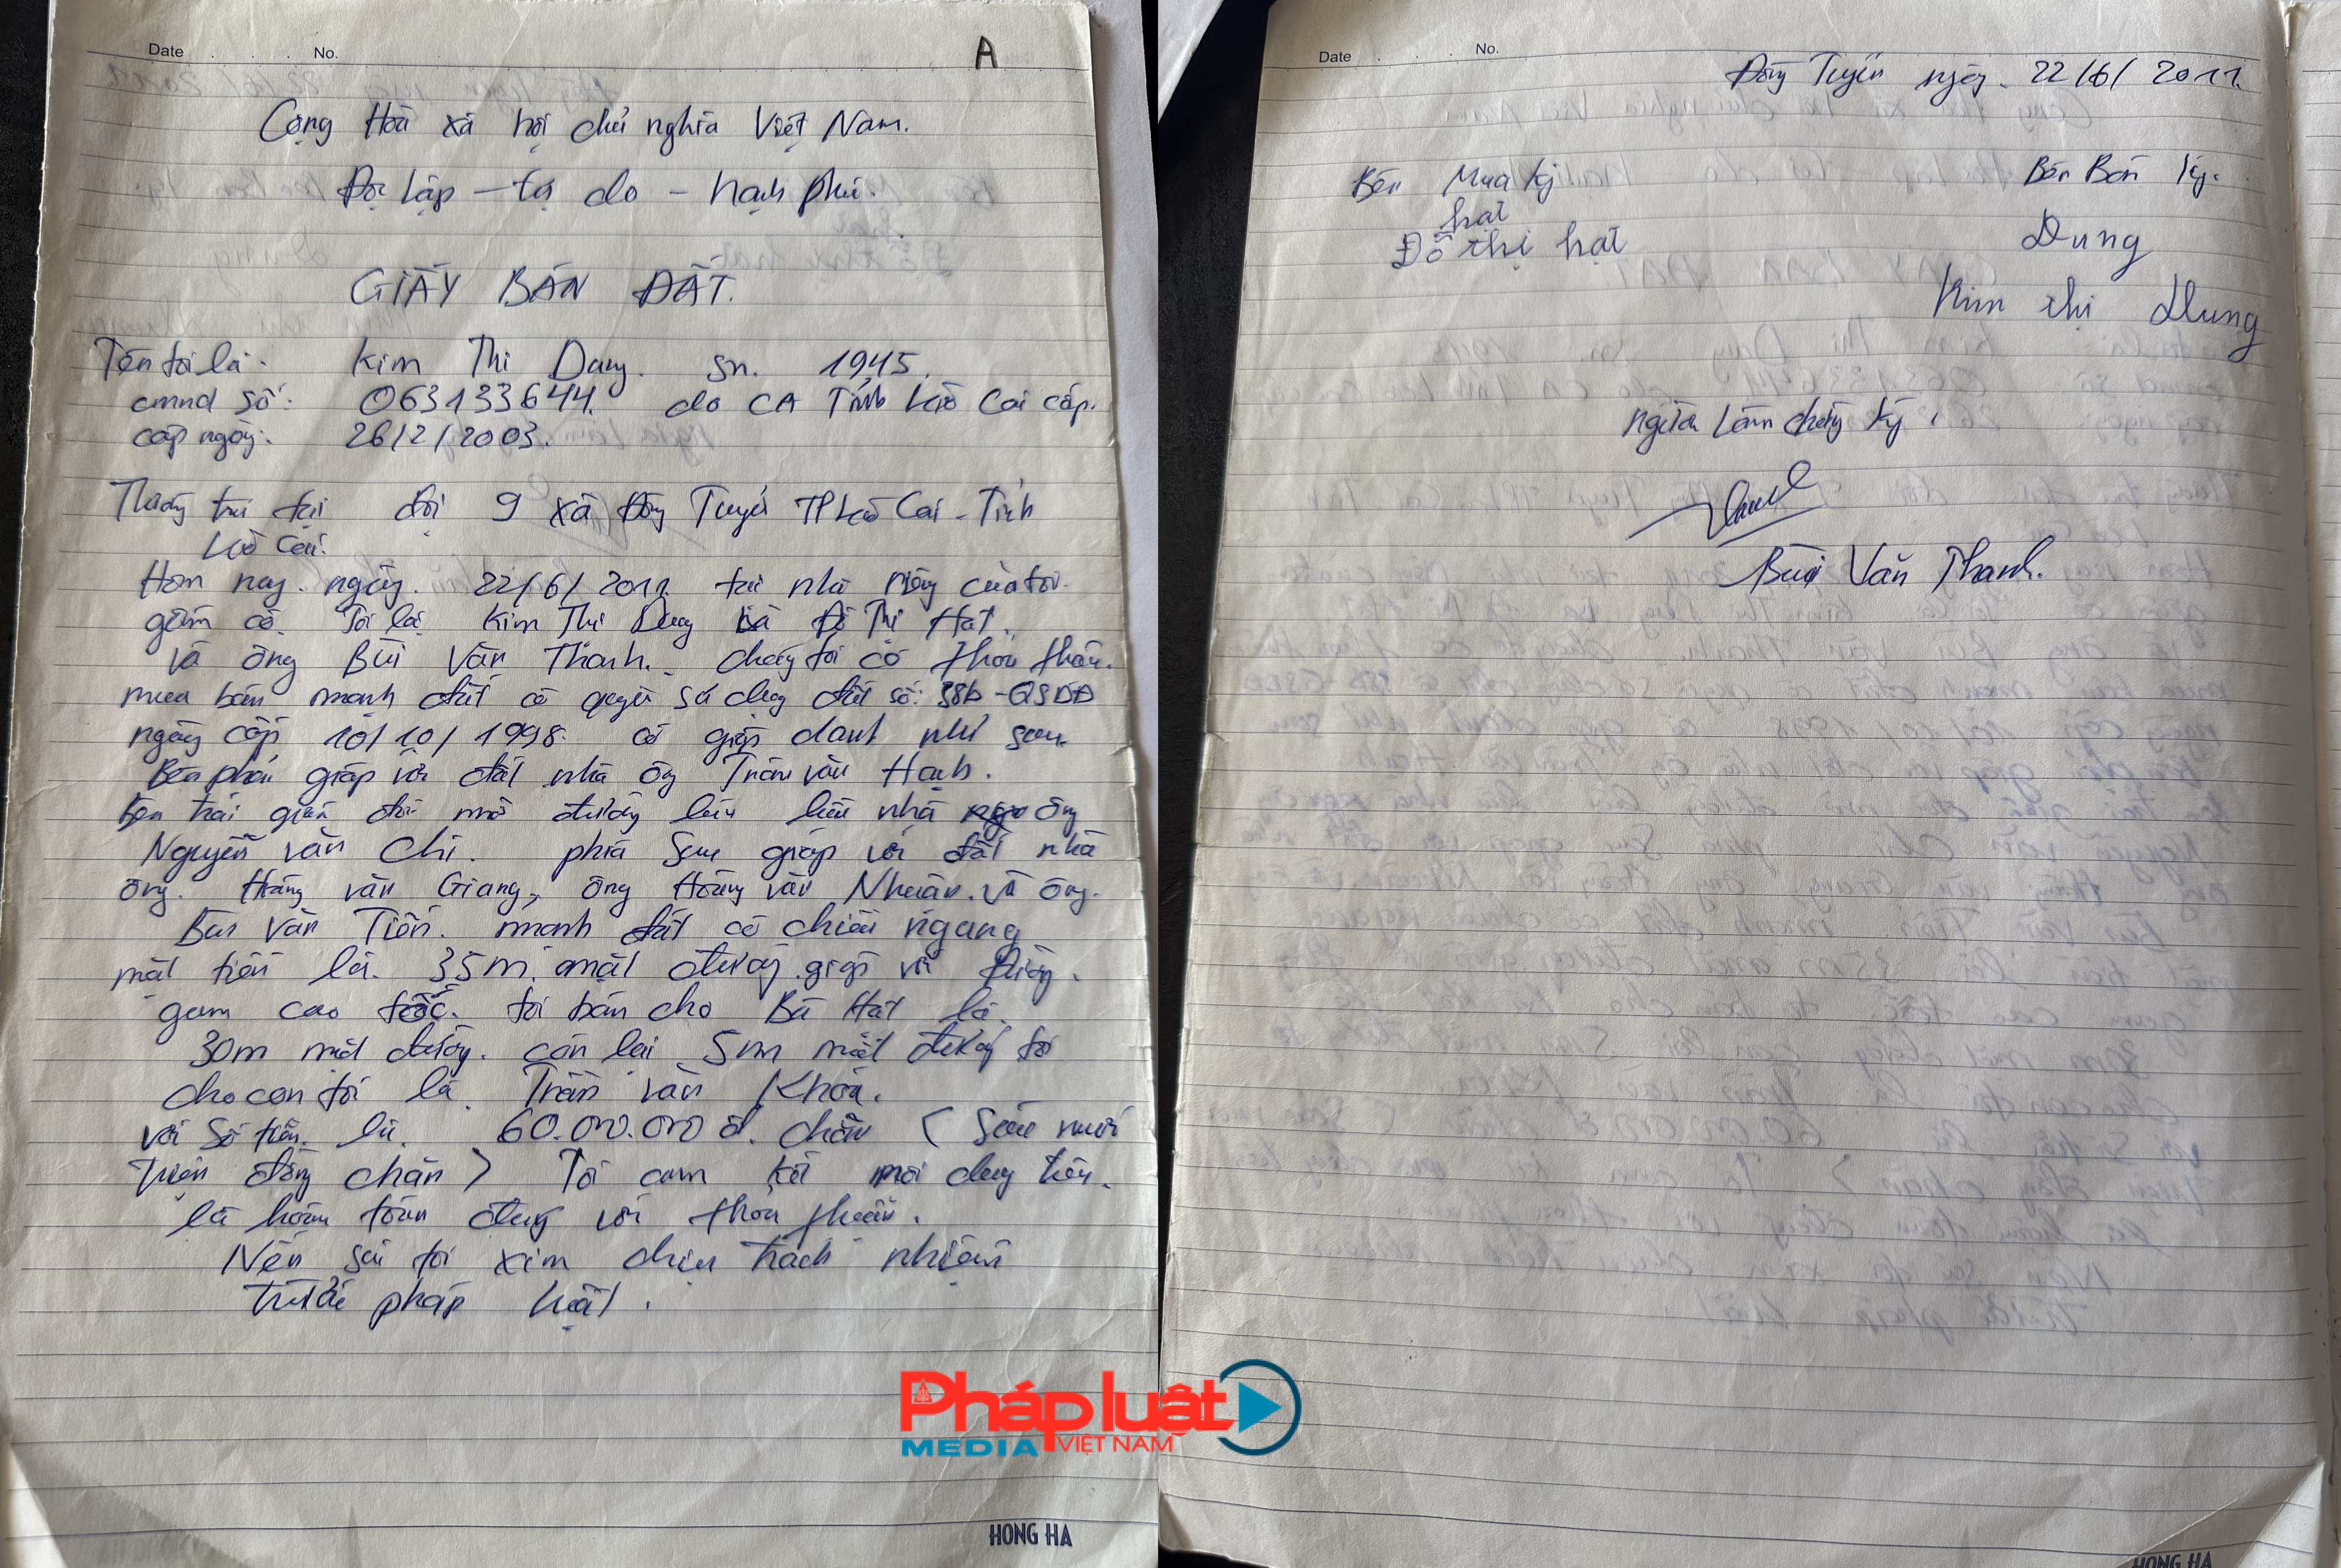 Date No. A
Cộng Hòa xã hội chủ nghĩa Việt Nam.
Độc lập - tự do - hạnh phúc.
GIẤY BÁN ĐẤT.
Tên tôi là: Kim Thị Dung. sn. 1945.
cmnd số: 063133644. do CA Tỉnh Lào Cai cấp.
cấp ngày: 26/2/2003.
Thường trú tại đội 9 xã Đồng Tuyển TP Lào Cai - Tỉnh
Lào Cai.
Hôm nay. ngày. 22/6/2011. tại nhà riêng của tôi.
gồm có. Tôi là Kim Thị Dung và Đỗ Thị Hát.
và ông Bùi Văn Thanh. chúng tôi có thỏa thuận.
mua bán mảnh đất có quyền sử dụng đất số: 38b - QSDĐ
ngày cấp 10/10/1998. có giáp danh như sau.
Bên phải giáp với đất nhà ông Trần Văn Hạnh.
Bên trái giáp đất mở đường lên nhà ông
Nguyễn Văn Chí. phía sau giáp với đất nhà
ông. Hoàng văn Giang, ông Hoàng văn Nhuận. và ông.
Bùi Văn Tiến. mảnh đất có chiều ngang
mặt tiền là. 35m. mặt đường. giáp với đường.
gom cao tốc. tôi bán cho Bà Hát là.
30m mặt đường. còn lại 5m mặt đường tôi
cho con tôi là Trần văn Khoa.
với số tiền. là. 60.000.000 đ. chẵn ( Sáu mươi
triệu đồng chẵn ) Tôi cam kết nội dung trên.
là hoàn toàn đúng với thỏa thuận.
Nếu sai tôi xin chịu trách nhiệm
trước pháp luật.
HONG HA
Date No.
Đồng Tuyển ngày. 22/6/2011.
Bên Mua ký Bên Bán ký.
hát Dung
Đỗ thị hát
Kim thị Dung
người làm chứng ký.
Thanh
Bùi Văn Thanh.
Pháp luật
MEDIA VIỆT NAM
HONG HA